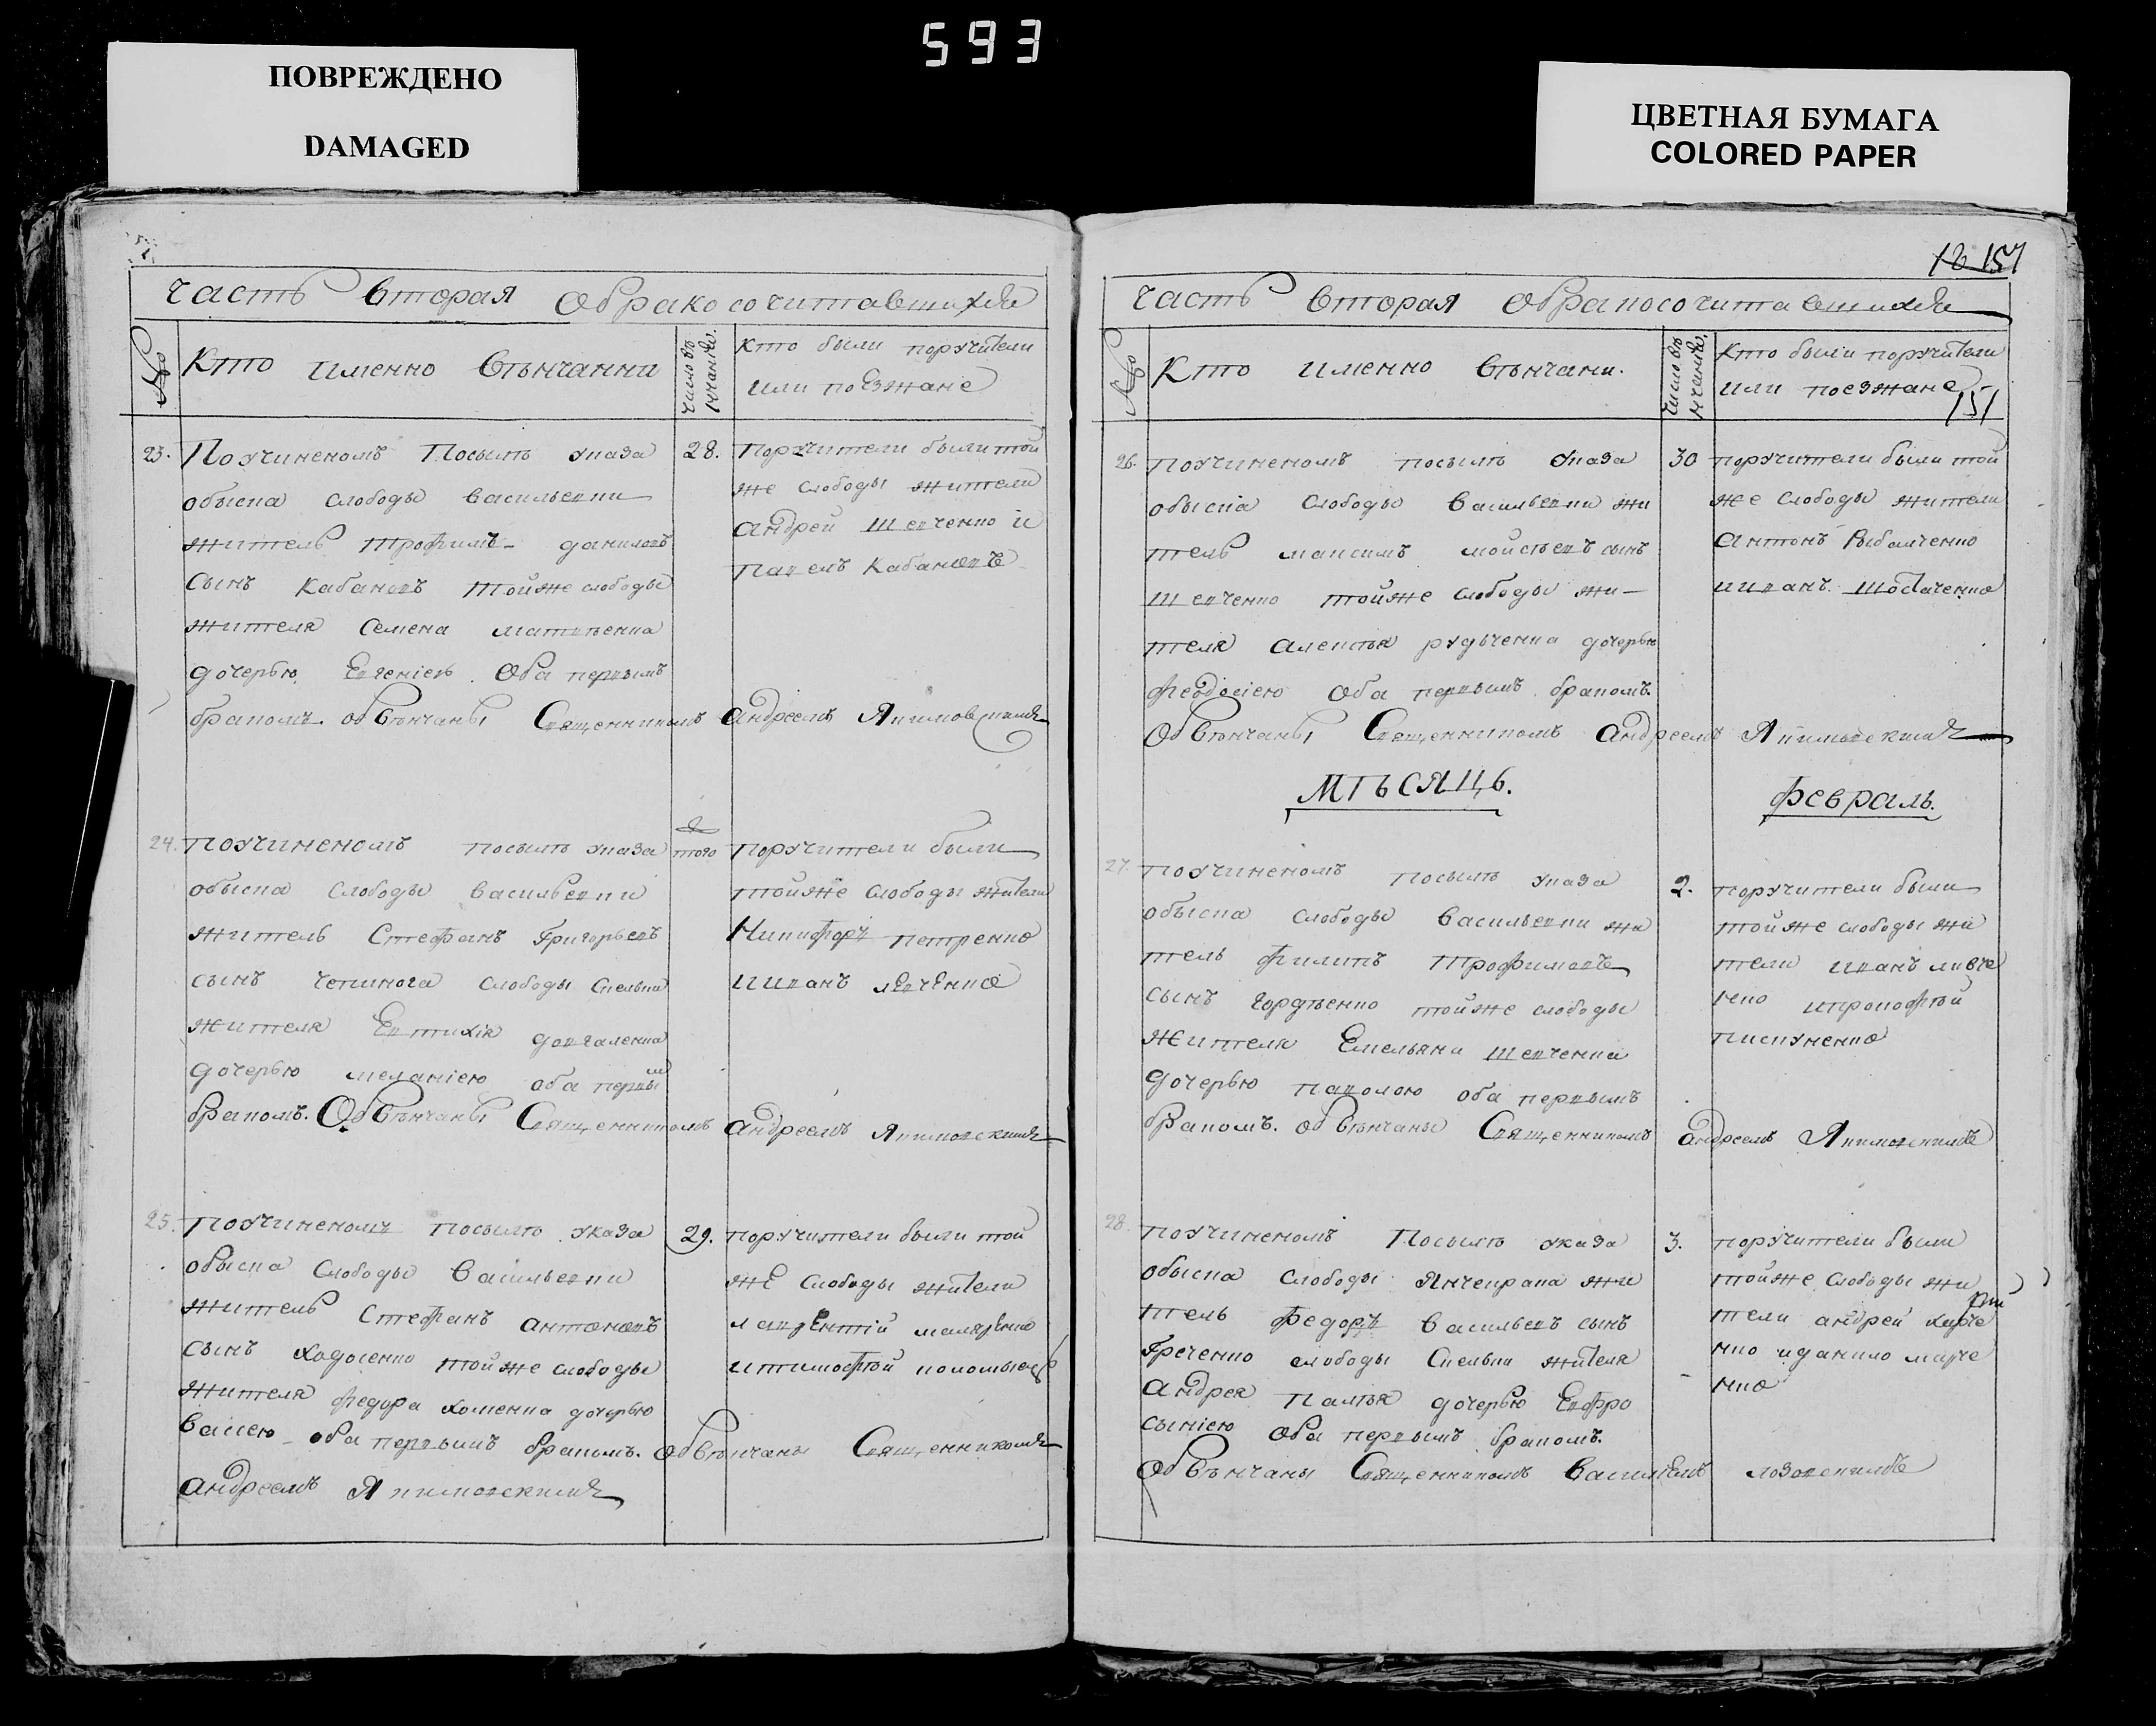 593
ПОВРЕЖДЕНО
DAMAGED
ЦВЕТНАЯ БУМАГА
COLORED PAPER
Часть вторая Обракосочитавшихся
№
Кто именно Вѣнчанни
число вѣнчанія.
Кто были поручители
или поѣзжане
23. По учиненомъ Посылъ указа
обыска слободы васильевки
житель трофимъ даниловъ
сынъ Кабановъ тойже слободы
жителя Семена матвѣенка
дочерью Евгеніею Оба первымъ
бракомъ. обвѣнчаны Священникомъ Андреемъ Якимовскимъ
28. поручители были той
же слободы жители
Андрей шевченко и
павелъ Кабановъ
24. по учиненомъ посылъ указа
обыска слободы васильевки
житель Стефанъ Григорьевъ
сынъ чепинога слободы Скельки
жителя Евтихія довгаленка
дочерью меланіею оба первым
бракомъ. Обвѣнчаны Священникомъ Андреемъ Якимовскимъ
того
поручители были
тойже слободы жители
Никифоръ петренко
ииванъ левченко
25. по учиненомъ посылъ указа
обыска слободы васильевки
житель Стефанъ антоновъ
сынъ ходосенко тойже слободы
жителя федора хоменка дочерью
вассою оба первымъ бракомъ. обвѣнчаны Священникомъ
Андреемъ Якимовскимъ
29. поручители были той
же слободы жители
лаврентій маляренко
итимофей
12 151
Часть вторая Обракосочитавшихся
№
Кто именно вѣнчани.
число вѣнчанію.
Кто были поручители
или поезжане
151
26. по учиненомъ посылъ указа
обыска слободы васильевки жи
тель максимъ мойсѣевъ сынъ
шевченко тойже слободы жи-
теля алексѣя рудченка дочерью
феодосіею Оба первымъ бракомъ.
Обвѣнчаны Священникомъ Андреемъ Якимовскимъ
30 поручители были той
же слободы жители
Антонъ Рыбалченко
ииванъ шостаченко
МѢСЯЦЬ. февраль.
27. по учиненомъ посылъ указа
обыска слободы васильевки жи
тель филипъ трофимовъ
сынъ гордѣенко тойже слободы
жителя Емельяна шевченка
дочерью павлою оба первымъ
бракомъ. обвѣнчаны Священникомъ Андреемъ Якимовскимъ
2. поручители были
тойже слободы жи
тели иванъ ливче
нко ипрокофей
пискуненко
28. по учиненомъ Посылъ указа
обыска слободы Янчекрака жи
тель федоръ васильевъ сынъ
Греченко слободы Скельки жителя
Андрея палѣя дочерью Евфро
сыніею Оба первымъ бракомъ.
Обвѣнчаны Священникомъ василіемъ лозовскимъ
3. поручители были
тойже слободы жи
тели андрей
нко иданило марче
нко